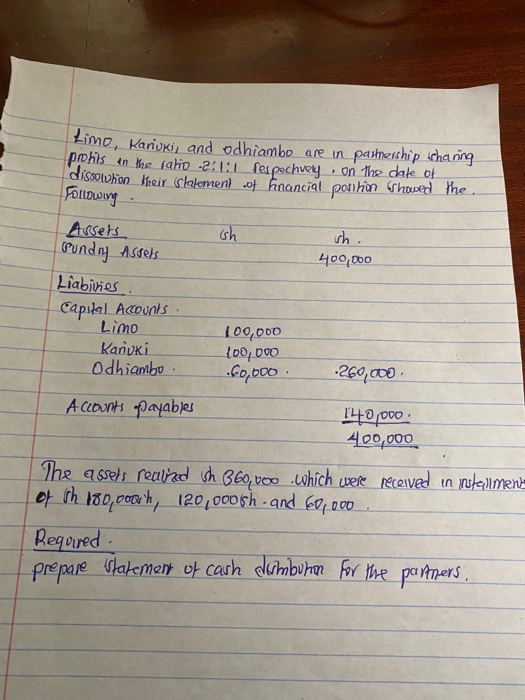 Limo, Kariuki, and Odhiambo are in partnership sharing
profits in the ratio 2:1:1 respectively. on the date of
dissolution their statement of financial position showed the
Following.
Assets sh sh.
Sundry Assets 400,000
Liabilities.
Capital Accounts.
Limo 100,000
Kariuki 100,000
Odhiambo. 60,000. 260,000.
Accounts payables 140,000.
400,000
The assets realized sh 360,000 .which were received in installment
of sh 180,000sh, 120,000sh. and 60,000.
Required.
prepare statement of cash distribution for the partners.